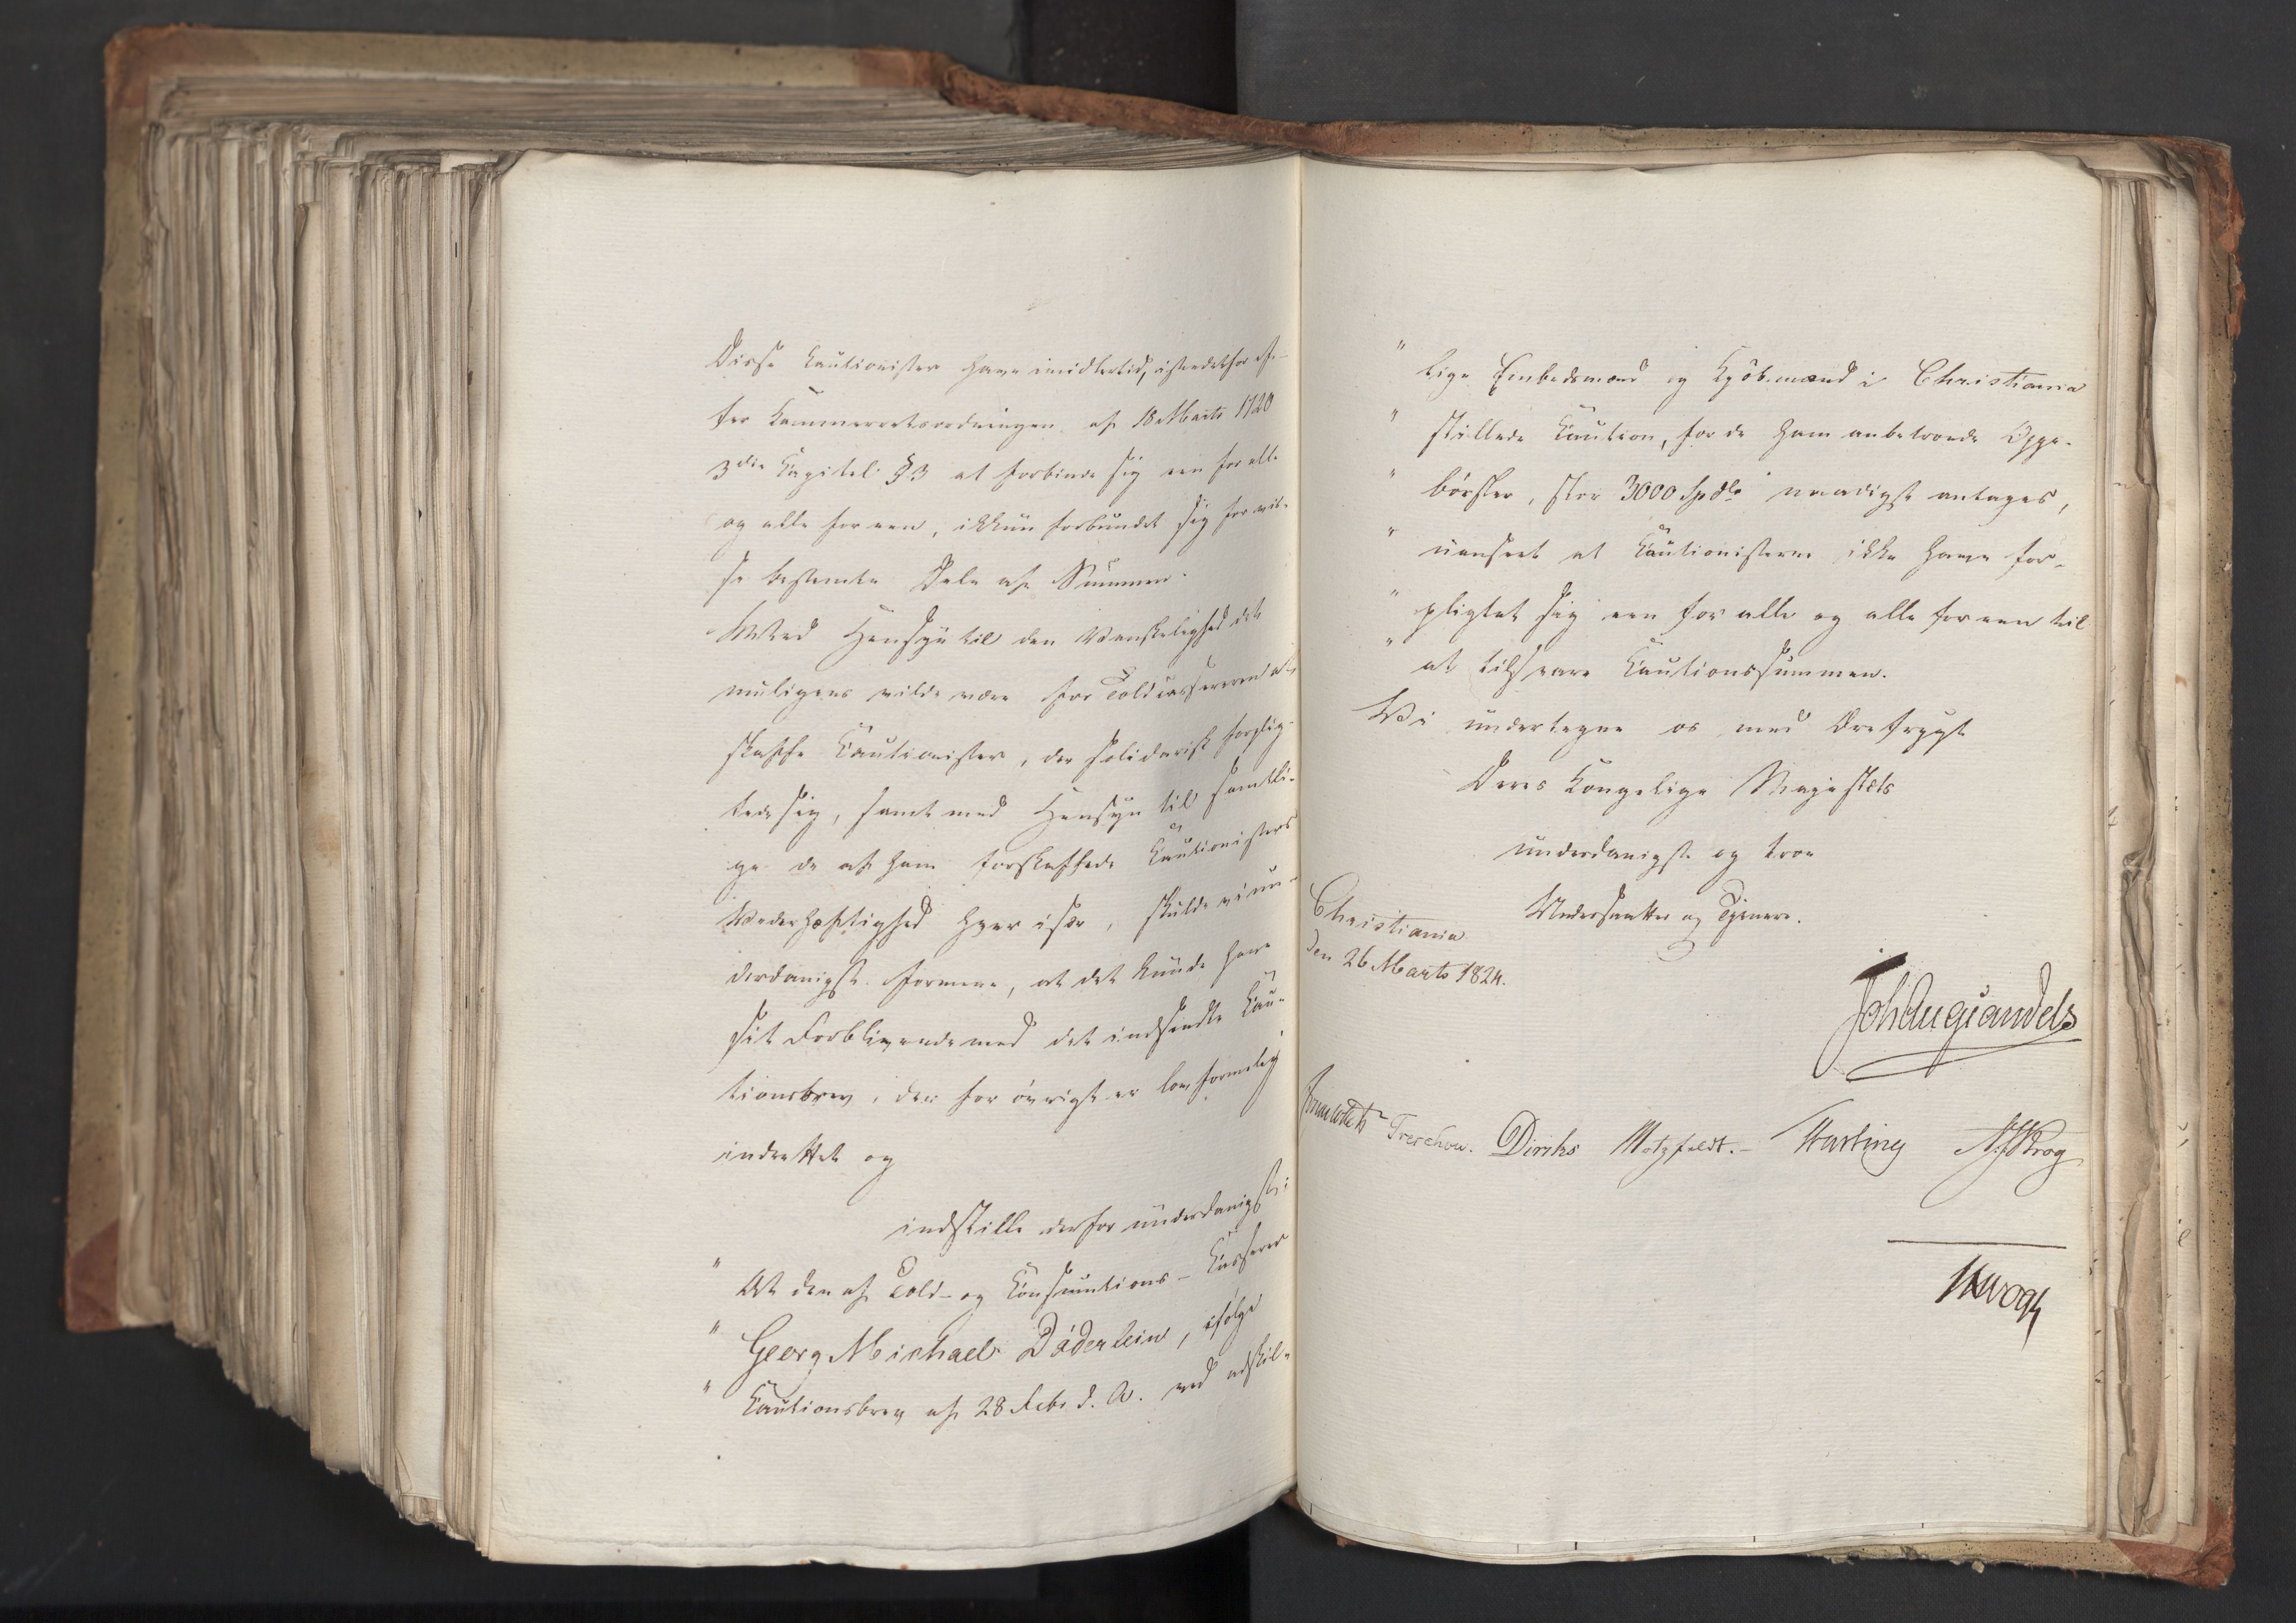 Disse Kautionister have imidlertid, istedetfor ef-
ter Kammerretsordningen af 18 Marts 1720
3die Kapitel § 3 at forbinde sig een for alle
og alle for een, ikkun forbundet sig for vis-
se bestemte Dele af Summen.
Med Hensyn til den Vanskelighed det
muligens vilde være for Toldcassereren at
skaffe Kautionister, der solidarisk forplig-
tede sig, samt med Hensyn til samtli-
ge de af ham forskaffede Kautionisters
Vederhæftighed hver især, skulde vi un-
derdanigst formene, at det kunde have
sit Forblivende med det indsendte Kau-
tionsbrev, der for øvrigt er lovformelig
indrettet og
indstille derfor underdanigst:
" At den af Told- og Konsumtions-Kasserer
" Georg Michael Döderlein, ifølge
" Kautionsbrev af 28 Febr d. A. ved adskil-
" lige Embedsmænd og Kjöbmænd i Christiania
" stillede Kaution, for de ham anbetroede Oppe-
" børsler, stor 3000 Spdlr naadigst antages,
" uanseet at Kautionisterne ikke have for-
" pligtet sig een for alle og alle for een til
" at tilsvare Kautionssummen.
Vi undertegne os med Ærefrygt
Deres Kongelige Majestæts
underdanigste og troe
Undersaatter og Tjenere.
Christiania
den 26 Marts 1824.
Joh Aug Sandels
Sommerhielm Treschow. Diriks Motzfeldt. - Fasting N. J. Krog
Vogt